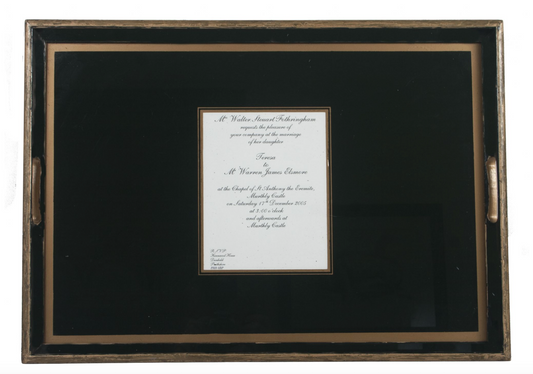 Mr Walter Steuart Fothringham
requests the pleasure of
your company at the marriage
of his daughter
Teresa
to
Mr Warren James Elsmore
at the Chapel of St Anthony the Eremite,
Murthly Castle
on Saturday 17th December 2005
at 2:00 o'clock
and afterwards at
Murthly Castle
R.S.V.P.